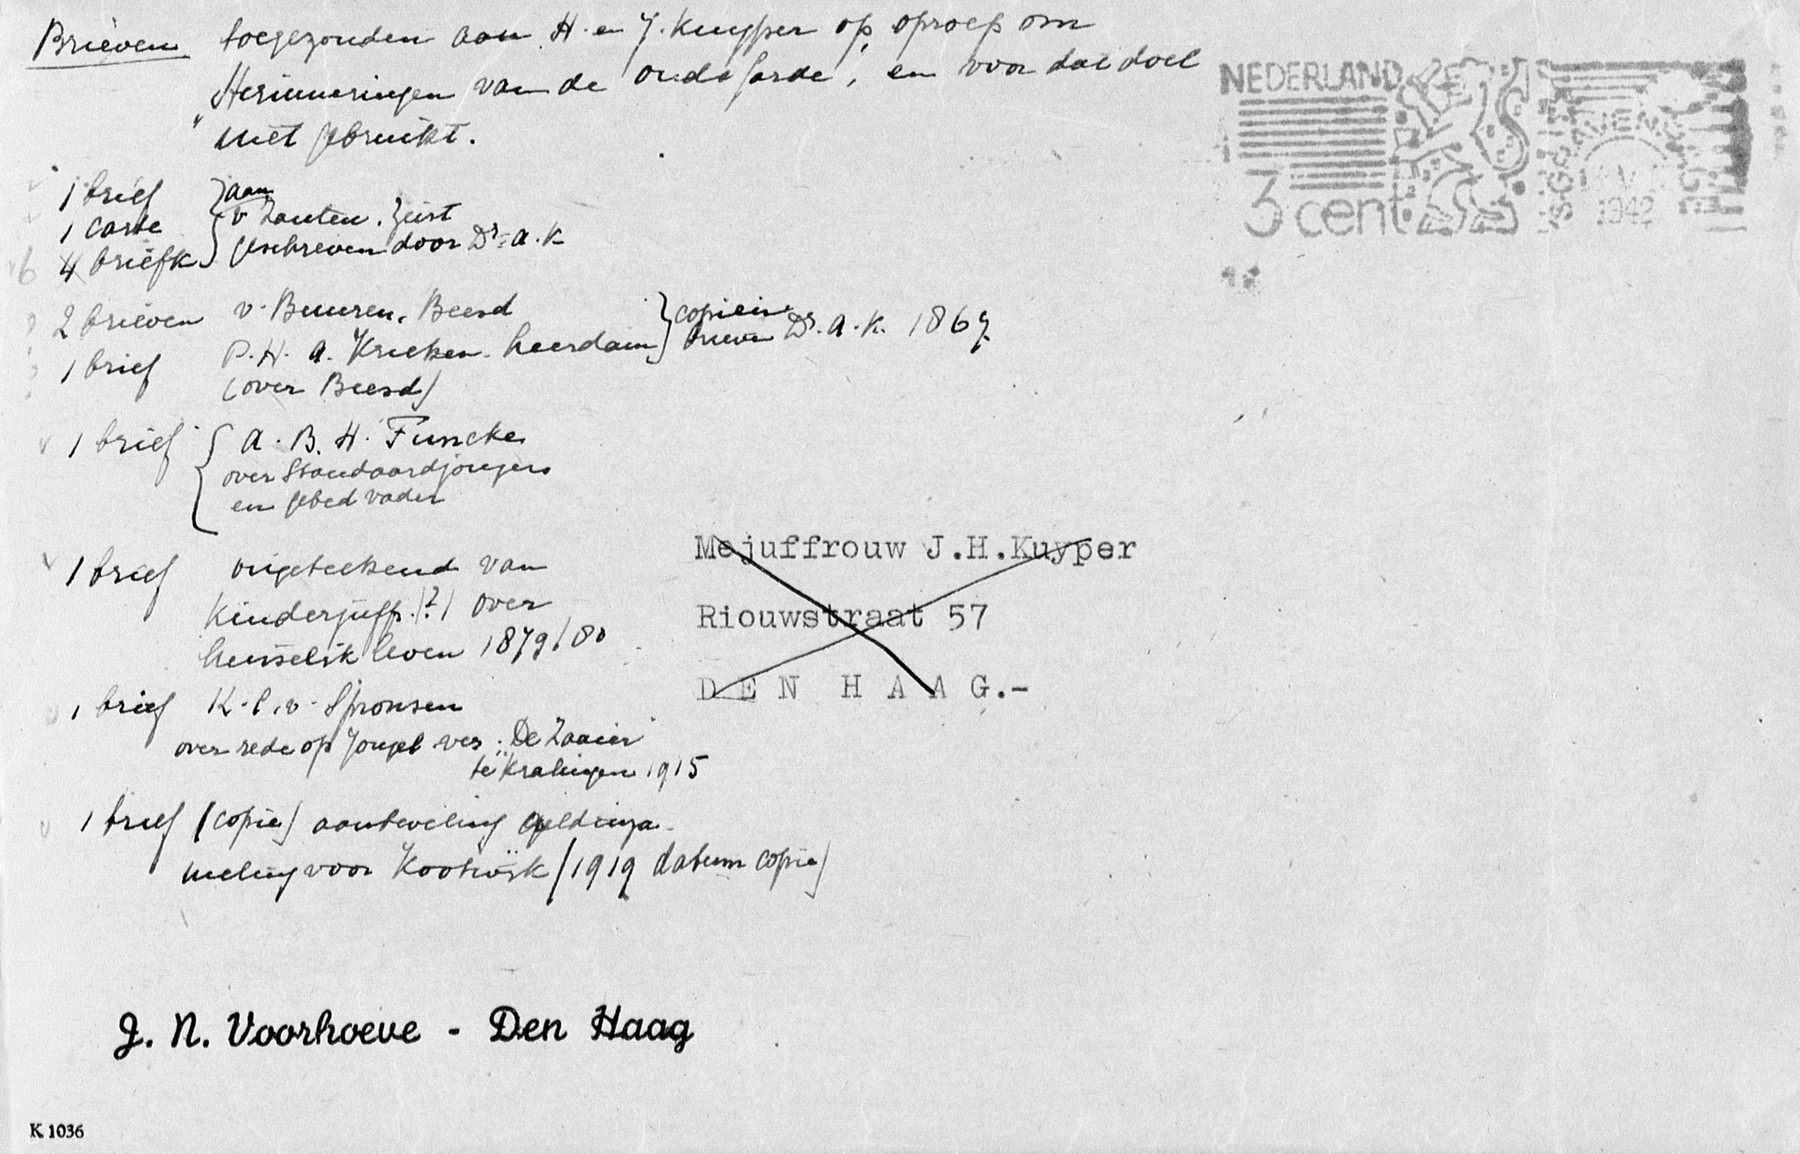 Brieven toegezonden aan H. en J. Kuyper op oproep om
"Herinneringen van de oude garde", en voor dat doel
niet gebruikt.
NEDERLAND
3 cent
'S-GRAVENHAGE
1942
1 brief } aan
1 carte } v Zanten. Zeist
6 4 briefk } geschreven door Dr. A. K
2 brieven v. Buuren. Beesd } copieën
1 brief P. H. A. Krieken. Leerdam } brieven Dr. A. K. 1867
(over Beesd)
1 brief { A. B. H. Funcke
over Standaardjongens
en gebed vader
1 brief ongeteekend van
Kinderjuff. (?) over
huiselijk leven 1879/80
1 brief K. C. v. Spronsen
over rede op Jongel ver. "De Zaaier"
te Kralingen 1915
1 brief (copie) aanbeveling geldinza-
meling voor Kootwijk (1919 datum copie)
Mejuffrouw J.H.Kuyper
Riouwstraat 57
D E N H A A G.-
J. N. Voorhoeve - Den Haag
K 1036